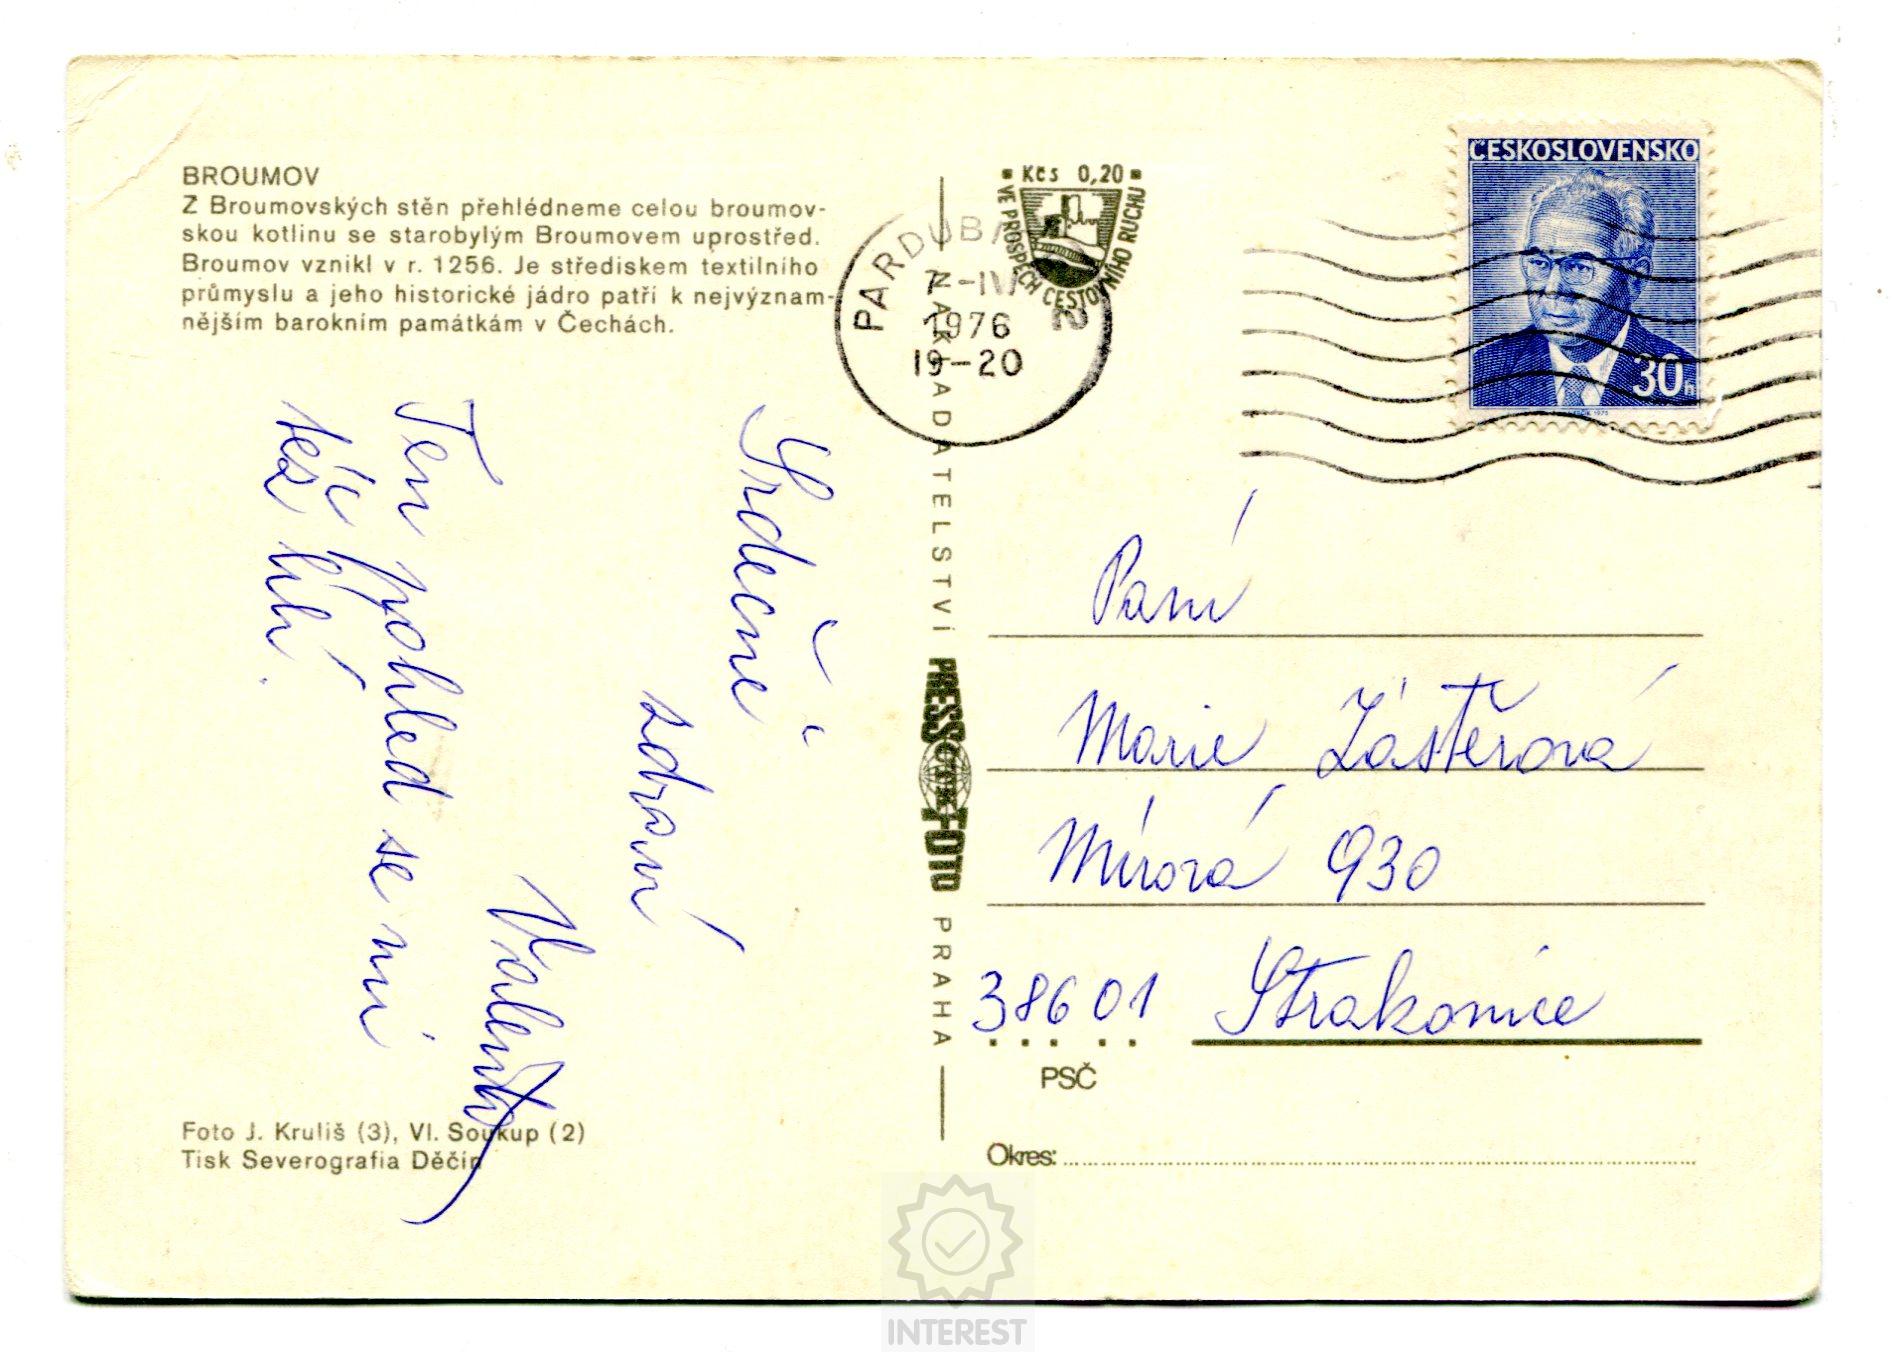 BROUMOV
Z Broumovských stěn přehlédneme celou broumov-
skou kotlinu se starobylým Broumovem uprostřed.
Broumov vznikl v r. 1256. Je střediskem textilního
průmyslu a jeho historické jádro patří k nejvýznam-
nějším barokním památkám v Čechách.
Srdečně
zdraví
Ten pohled se mi
též líbí.
Foto J. Kruliš (3), Vl. Soukup (2)
Tisk Severografia Děčín
NAKLADATELSTVÍ PRESSFOTO PRAHA
Kčs 0,20
VE PROSPĚCH CESTOVNÍHO RUCHU
PARDUBI 2
7-IV
1976
19-20
ČESKOSLOVENSKO
30h
Paní
Marie Zástěrová
Mírová 930
38601 Strakonice
PSČ
Okres:
INTEREST